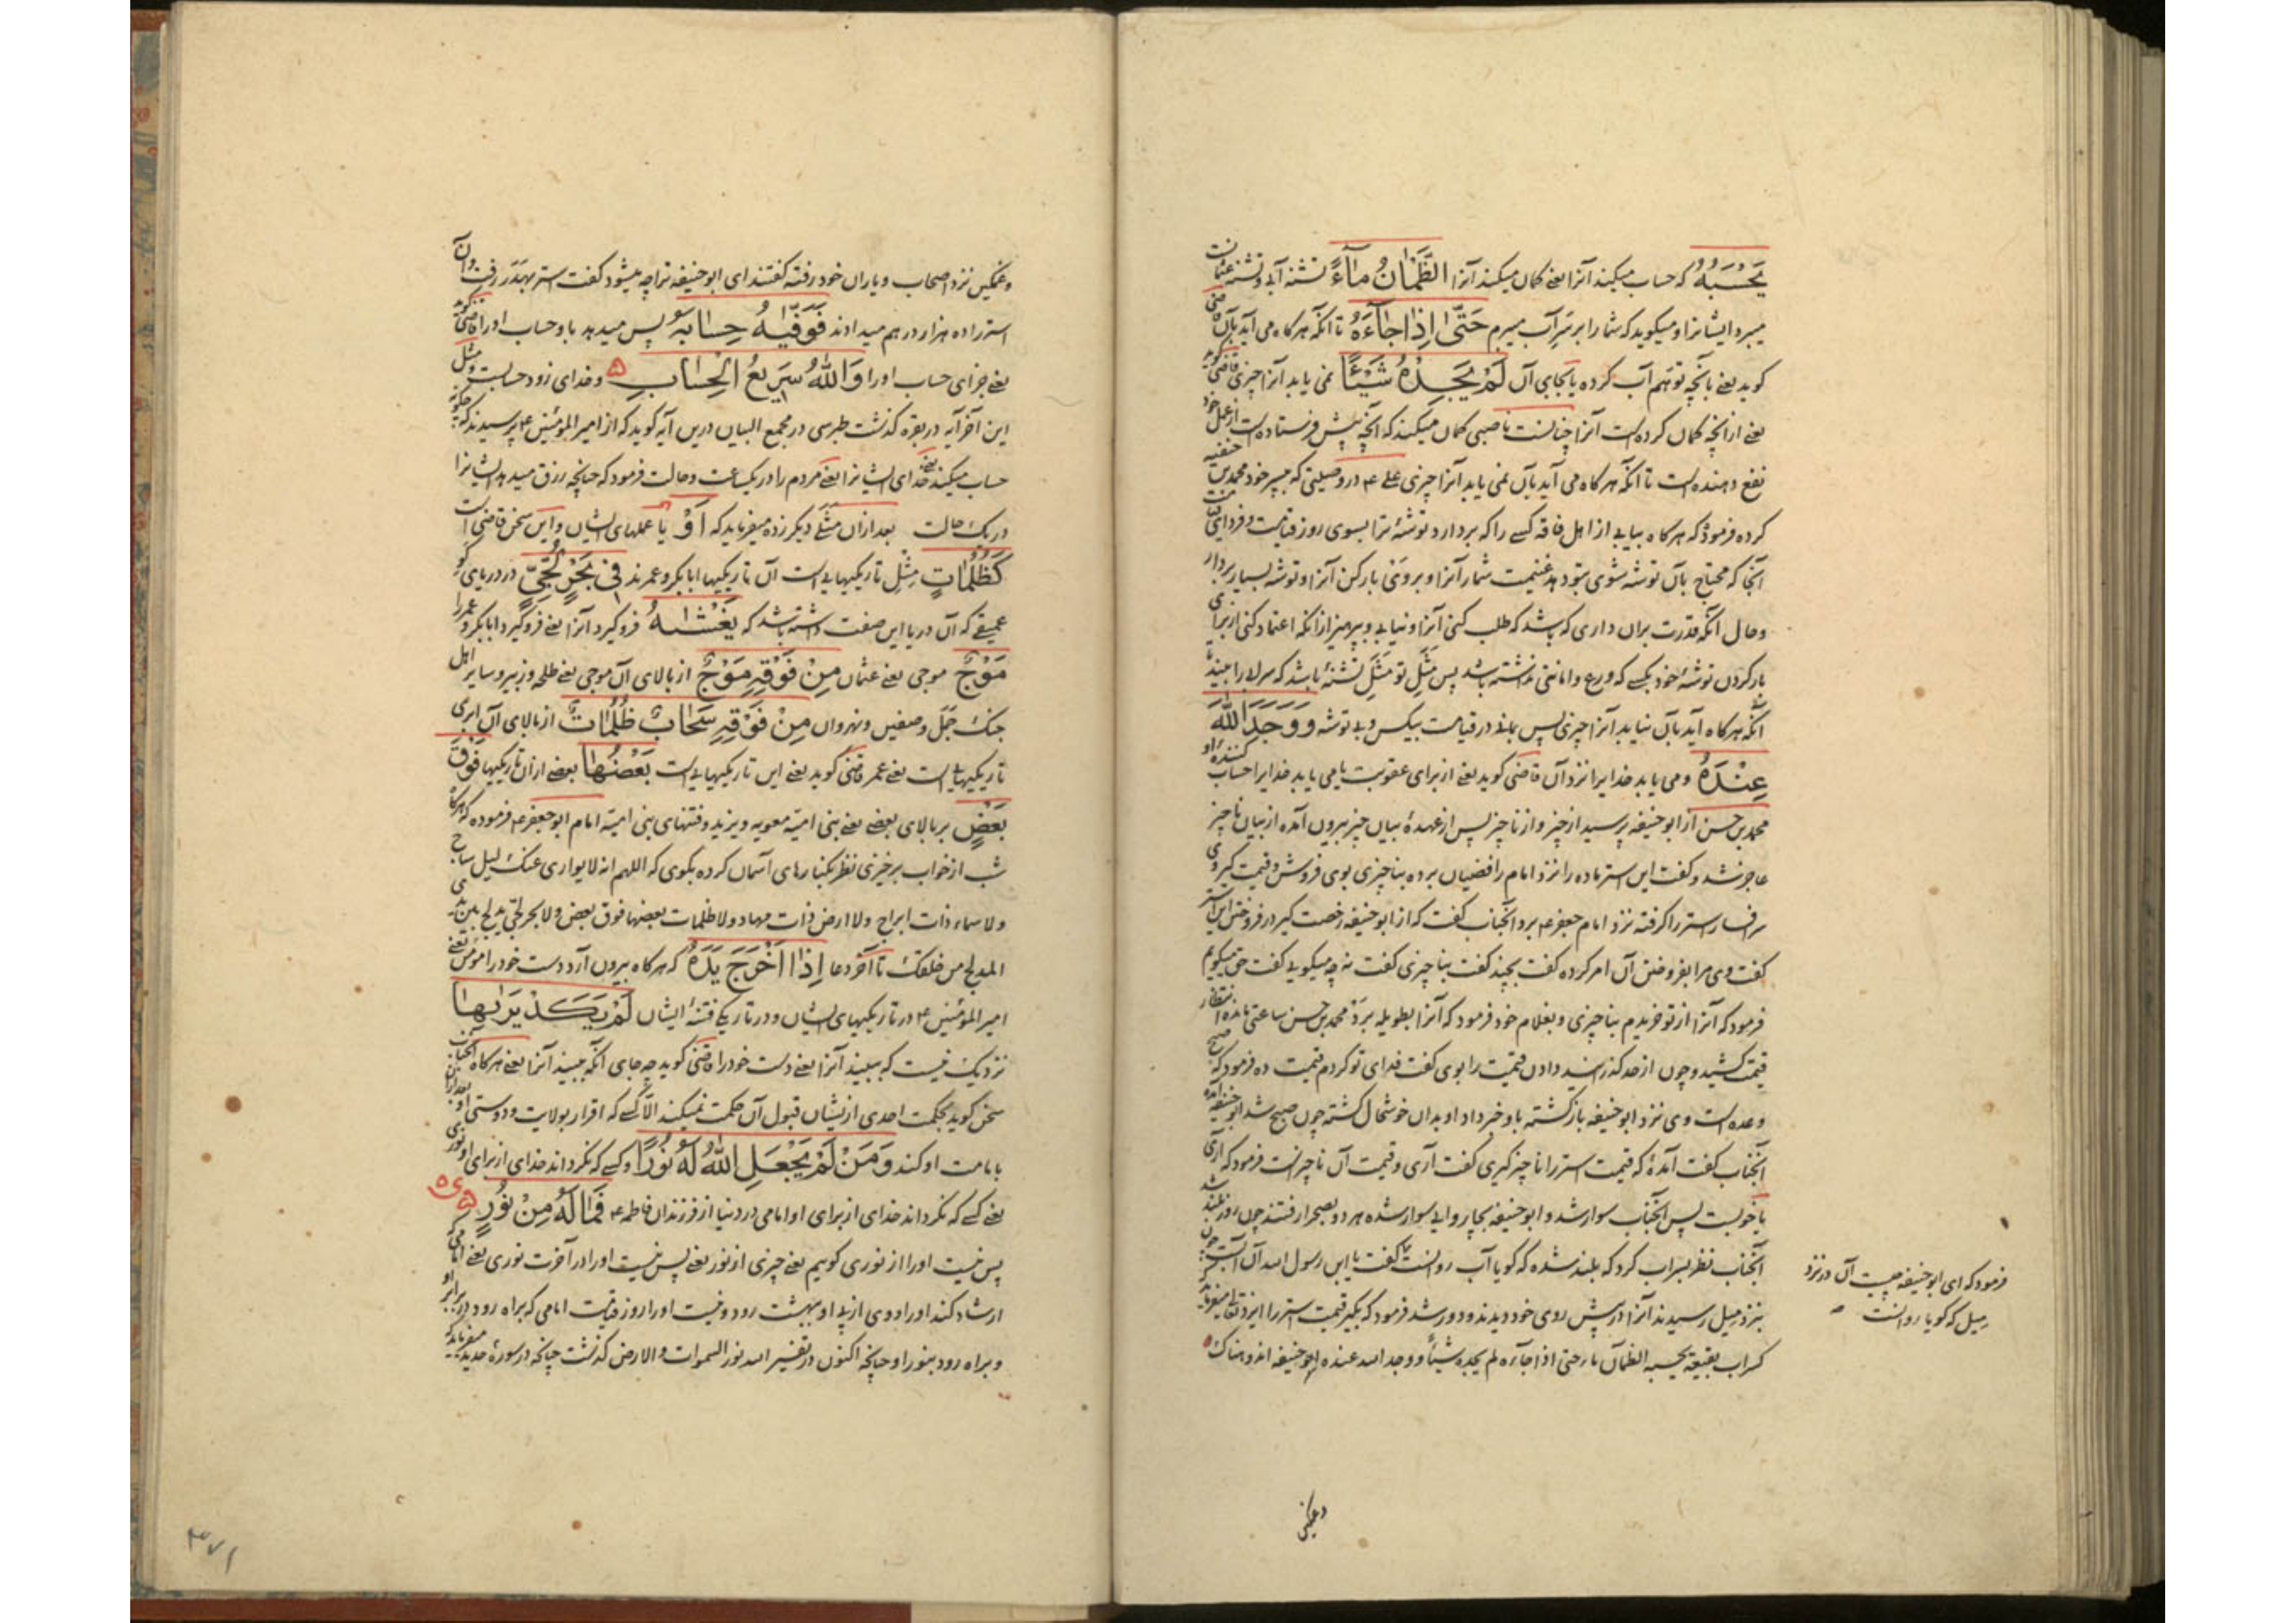 يَحْسَبُهُ که حساب میکند آنرا یعنی کمان میکند آنرا الظَّمْاٰنُ مٰآءً تشنه آبی و تشنه
میبرد ایشانرا و میکوید که شما را بر سر آب میبرم حَتّىٰ اِذٰا جٰآءَهُ تا آنکه هرکاه می آید بآن
کوید یعنی بآنچه توهم آب کرده یا بجای آن لَمْ يَجِدْهُ شَيْئًا نمی یابد آنرا چیزی قاضی کوید
یعنی از آنچه کمان کرده است آنرا چنانست ناصبی کمان میکند که آنچه پیش فرستاده است از عمل خود
نفع دهنده است تا آنکه هرکاه می آید بآن نمی یابد آنرا چیزی علی ع در وصیتی که بپسر خود محمد بن حنفیه
کرده فرمود که هرکاه بیابی از اهل فاقه کسی را که بردارد توشهٔ ترا بسوی روز قیامت و فردای
آنجا که محتاج بآن توشه شوی بتو دهد غنیمت شمار آنرا و بر وی بار کن آنرا و توشه بسیار بردار
و حال آنکه قدرت بران داری که باشد که طلب کنی آنرا و نیابی و بپرهیز از آنکه اعتماد کنی از برای
بار کردن توشهٔ خود بکسی که ورع و امانتی نداشته باشد پس مثل تو مثل تشنهٔ باشد که سراب را بیند تا
آنکه هرکاه آید بآن نیابد آنرا چیزی پس بمانی در قیامت بیکس و بی توشه وَوَجَدَ اللّٰهَ
عِنْدَهُ و می یابد خدایرا نزد آن قاضی کوید یعنی از برای عقوبت یا می یابد خدایرا حساب کننده او
محمد بن حسن از ابوحنیفه پرسید از چیز و از ناچیز پس از عهدهٔ بیان چیز بیرون آمده از بیان ناچیز
عاجز شد و کفت این استر ماده را نزد امام رافضیان برده بناچیزی بوی فروش و قیمت کیر وی
سر افسار استر را کرفته نزد امام جعفر ع برد آنجناب کفت که از ابوحنیفه رخصت کیر در فروختن این استر
کفت وی مرا بفروختن آن امر کرده کفت بچند کفت بناچیزی کفت نه چه میکویی کفت حق میکویم
فرمود که آنرا از تو خریدم بناچیزی و بغلام خود فرمود که آنرا بطویله برد محمد بن حسن ساعتی مانده انتظار
قیمت کشید و چون از حد کذرانید دادن قیمت را بوی کفت فدای تو کردم قیمت ده فرمود که صبح
وعده است وی نزد ابوحنیفه بازکشته باو خبر داد او بدان خوشحال کشته چون صبح شد ابوحنیفه آمد
آنجناب کفت آمدهٔ که قیمت استر را ناچیز کیری کفت آری و قیمت آن ناچیز است فرمود که آری
پس آنجناب سوار شد و ابوحنیفه بچاروایی سوار شده هر دو بصحرا رفتند چون روز بلند شد
آنجناب نظر بسراب کرد که بلند شده که کویا آب روانست کفت یا ابن رسول الله آن آبست چون
بنزد میل رسیدند آنرا در پیش روی خود دیدند و دور شد فرمود که بکیر قیمت استر را
کسراب بقیعة یحسبه الظمآن ماء حتی اذا جآءه لم یجده شیئاً و وجد الله عنده ابوحنیفه اندوهناک
فرمود که ای ابوحنیفه چیست آن در نزد
میل که کویا روانست
و غمکین
و غمکین نزد اصحاب و یاران خود رفته کفتند ای ابوحنیفه ترا چه میشود کفت استر بهدر رفت و آن
استر را ده هزار درهم میدادند فَوَفّٰيهُ حِسٰابَهُ پس میدهد باو حساب او را قاضی کوید
یعنی جزای حساب او را وَاللّٰهُ سَرِيعُ الْحِسٰابِ و خدای زود حسابست و مثل
این آخر آیه در بقره کذشت طبرسی در مجمع البیان درین آیه کوید که از امیر المومنین ع پرسیدند که چکونه
حساب میکند خدای ایشانرا یعنی مردم را در یکساعت و حالت فرمود که چنانچه رزق میدهد ایشانرا
در یک حالت بعد از آن مثلی دیکر زده میفرماید که اَوْ یا عملهای ایشان و این سخن قاضی است
كَظُلُمٰاتٍ مثل تاریکیهایی است آن تاریکیها ابابکر و عمرند فِي بَحْرٍ لُجِّيٍّ در دریای
عمیقی که آن دریا این صفت داشته باشد که يَغْشٰيهُ فروکیرد آنرا یعنی فروکیرد ابابکر و عمر را
مَوْجٌ موجی یعنی عثمان مِنْ فَوْقِهِ مَوْجٌ از بالای آن موجی یعنی طلحه و زبیر و سایر اهل
جنک جمل و صفین و نهروان مِنْ فَوْقِهِ سَحٰابٌ ظُلُمٰاتٌ از بالای آن ابری
تاریکیهایی است یعنی عمر قاضی کوید یعنی این تاریکیهایی است بَعْضُهٰا بعضی از آن تاریکیها فَوْقَ
بَعْضٍ بر بالای بعضی یعنی بنی امیه معویه و یزید و فتنهای بنی امیه امام ابو جعفر ع فرموده که هرکاه
شب از خواب برخیزی نظر بکنارهای آسمان کرده بکوی که اللهم انه لا یواری عنک لیل ساج
ولا سماء ذات ابراج ولا ارض ذات مهاد ولا ظلمات بعضها فوق بعض ولا بحر لجی یدلج بین یدی
المدلج من خلقک تا آخر دعا اِذٰا اَخْرَجَ يَدَهُ که هرکاه بیرون آرد دست خود را مومن یعنی
امیر المومنین ع در تاریکیهای ایشان و در تاریکی فتنهٔ ایشان لَمْ يَكَدْ يَرٰيهٰا
نزدیک نیست که ببیند آنرا یعنی دست خود را قاضی کوید چه جای آنکه ببیند آنرا یعنی هرکاه آنجناب
سخن کوید بحکمت احدی از ایشان قبول آن حکمت نمیکند الا کسی که اقرار بولایت و دوستی او
بامامت او کند وَمَنْ لَمْ يَجْعَلِ اللّٰهُ لَهُ نُورًا و کسی که نکرداند خدای از برای او نوری
یعنی کسی که نکرداند خدای از برای او امامی در دنیا از فرزندان فاطمه ع فَمٰا لَهُ مِنْ نُورٍ
پس نیست او را از نوری کوییم یعنی چیزی از نور یعنی پس نیست او را در آخرت نوری یعنی امامی که
ارشاد کند او را و وی از پی او ببهشت رود و نیست او را روز قیامت امامی که براه رود در برابر او
و براه رود بنور او چنانکه اکنون در تفسیر الله نور السموات والارض کذشت چنانکه در سورهٔ حدید میفرماید که
۳۷۱